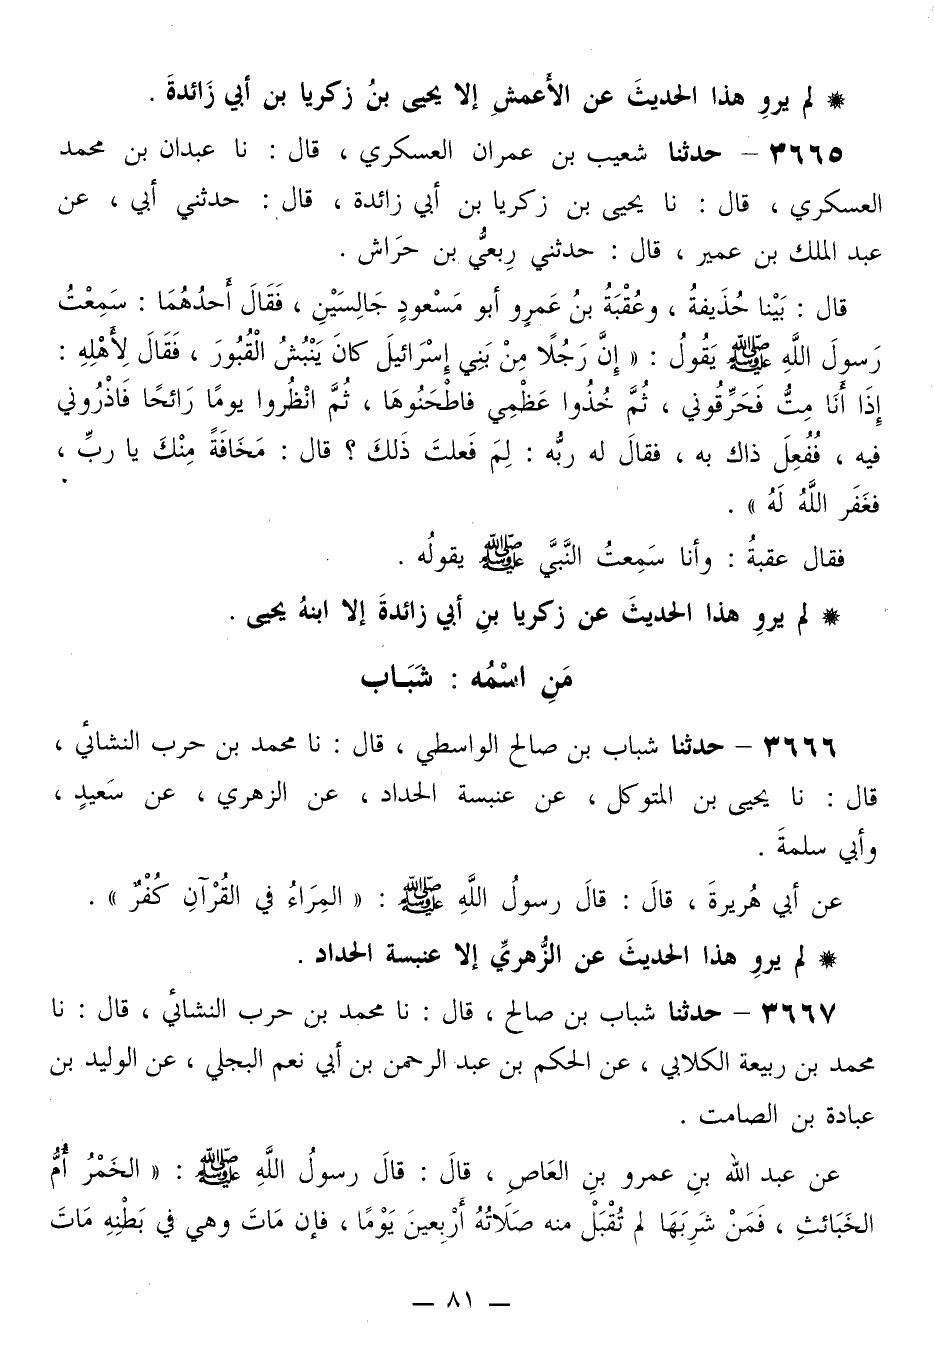 * لم يروِ هذا الحديثَ عن الأَعمشِ إلا يحيى بنُ زكريا بن أبي زَائدةَ .
٣٦٦٥ – حدثنا شعيب بن عمران العسكري ، قال : نا عبدان بن محمد
العسكري ، قال : نا يحيى بن زكريا بن أبي زائدة ، قال : حدثني أبي ، عن
عبد الملك بن عمير ، قال : حدثني رِبعيُّ بن حرَاش .
قال : بَيْنا حُذَيفةُ ، وعُقْبَةُ بنُ عَمرٍو أبو مَسْعودٍ جَالِسَيْنِ ، فَقَالَ أَحدُهُمَا : سَمِعْتُ
رَسولَ اللَّهِ ﷺ يَقُولُ : « إِنَّ رَجُلًا مِنْ بَنِي إِسْرَائيلَ كانَ يَنْبُشُ الْقُبُورَ ، فَقَالَ لِأَهْلِهِ :
إِذَا أَنَا مِتُّ فَحَرِّقُوني ، ثُمَّ خُذُوا عَظْمِي فاطْحَنُوهَا ، ثُمَّ انْظُروا يومًا رَائحًا فَاذْرُوني
فيه ، فَفُعِلَ ذاك به ، فقالَ له ربُّه : لِمَ فَعلتَ ذَلكَ ؟ قال : مَخَافَةً مِنْكَ يا ربِّ ،
فغَفَر اللَّهُ لَهُ » .
فقال عقبةُ : وأنا سَمِعتُ النَّبيَّ ﷺ يقولُه .
* لم يروِ هذا الحديثَ عن زكريا بنِ أبي زائدةَ إلا ابنهُ يحيى .
مَنِ اسْمُه : شَبَاب
٣٦٦٦ – حدثنا شباب بن صالح الواسطي ، قال : نا محمد بن حرب النشائي ،
قال : نا يحيى بن المتوكل ، عن عنبسة الحداد ، عن الزهري ، عن سَعيدٍ ،
وأبي سلمةَ .
عن أبي هُريرةَ ، قالَ : قالَ رسولُ اللَّهِ ﷺ : « المِرَاءُ في القُرْآنِ كُفْرٌ » .
* لم يروِ هذا الحديثَ عن الزُّهريِّ إلا عنبسة الحداد .
٣٦٦٧ – حدثنا شباب بن صالح ، قال : نا محمد بن حرب النشائي ، قال : نا
محمد بن ربيعة الكلابي ، عن الحكم بن عبد الرحمن بن أبي نعم البجلي ، عن الوليد بن
عبادة بن الصامت .
عن عبد الله بنِ عمرو بنِ العَاصِ ، قالَ : قالَ رسولُ اللَّهِ ﷺ : « الخَمْرُ أُمُّ
الخَبَائثِ ، فَمَنْ شَرِبَهَا لم تُقْبَلْ منه صَلَاتُهُ أَرْبعينَ يَوْمًا ، فإن مَاتَ وهي في بَطْنِهِ مَاتَ
— ٨١ —